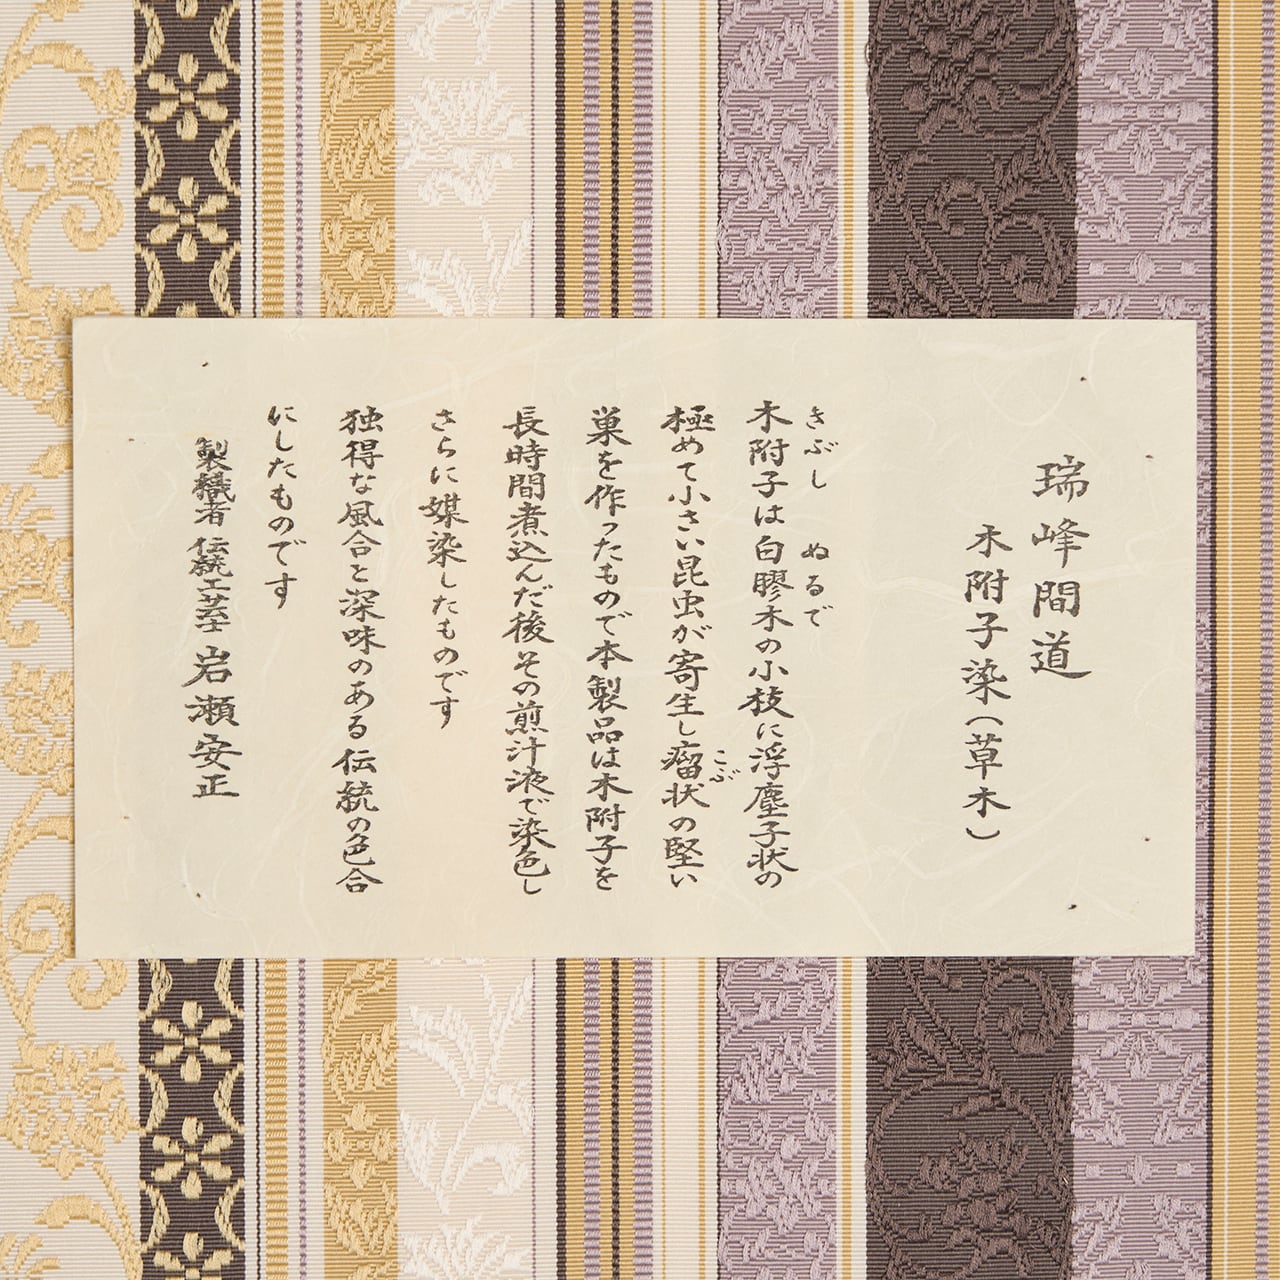 瑞峰間道
木附子染(草木)
きぶし ぬるで
木附子は白膠木の小枝に浮塵子状の
極めて小さい昆虫が寄生し瘤状の堅い
こぶ
巣を作ったもので本製品は木附子を
長時間煮込んだ後その煎汁液で染色し
さらに媒染したものです
独得な風合と深味のある伝統の色合
にしたものです
製織者 伝統工芸士 岩瀬安正